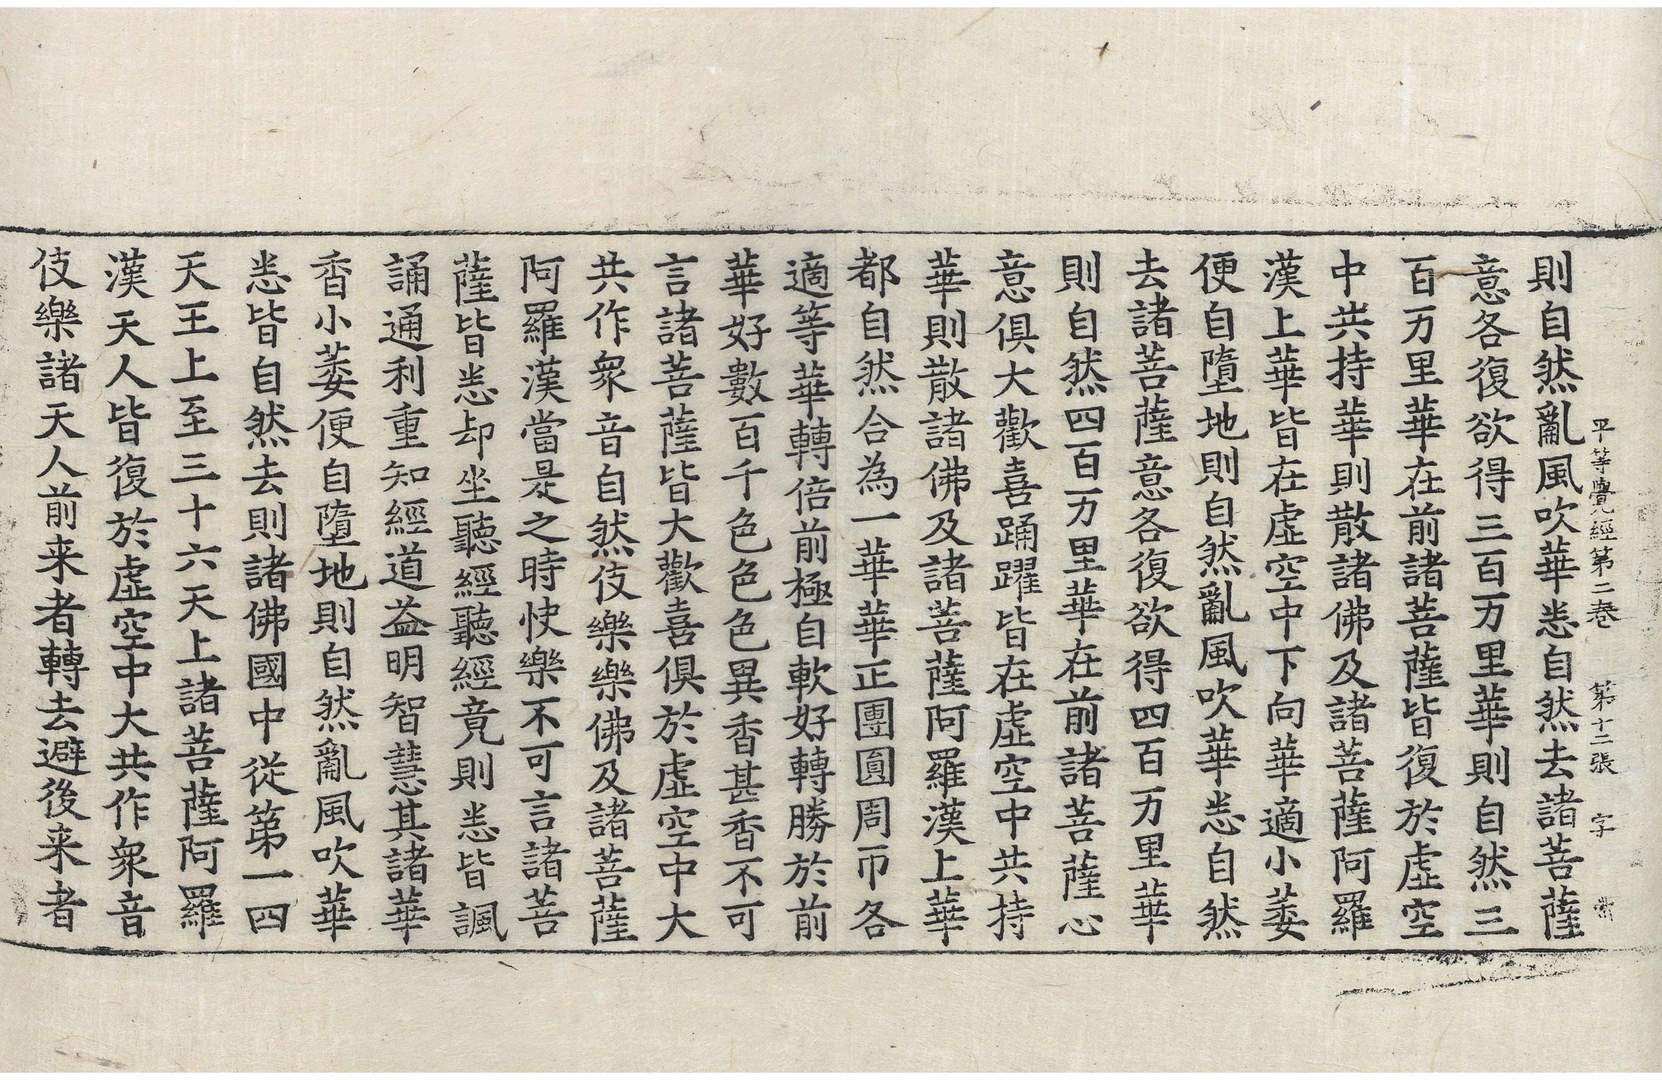 平等覺經第二卷 第十二張 字
則自然亂風吹華悉自然去諸菩薩
意各復欲得三百万里華則自然三
百万里華在前諸菩薩皆復於虛空
中共持華則散諸佛及諸菩薩阿羅
漢上華皆在虛空中下向華適小萎
便自墮地則自然亂風吹華悉自然
去諸菩薩意各復欲得四百万里華
則自然四百万里華在前諸菩薩心
意俱大歡喜踊躍皆在虛空中共持
華則散諸佛及諸菩薩阿羅漢上華
都自然合為一華華正團圓周帀各
適等華轉倍前極自軟好轉勝於前
華好數百千色色色異香甚香不可
言諸菩薩皆大歡喜俱於虛空中大
共作衆音自然伎樂樂佛及諸菩薩
阿羅漢當是之時快樂不可言諸菩
薩皆悉却坐聽經聽經竟則悉皆諷
誦通利重知經道益明智慧其諸華
香小萎便自墮地則自然亂風吹華
悉皆自然去則諸佛國中從第一四
天王上至三十六天上諸菩薩阿羅
漢天人皆復於虛空中大共作衆音
伎樂諸天人前来者轉去避後来者